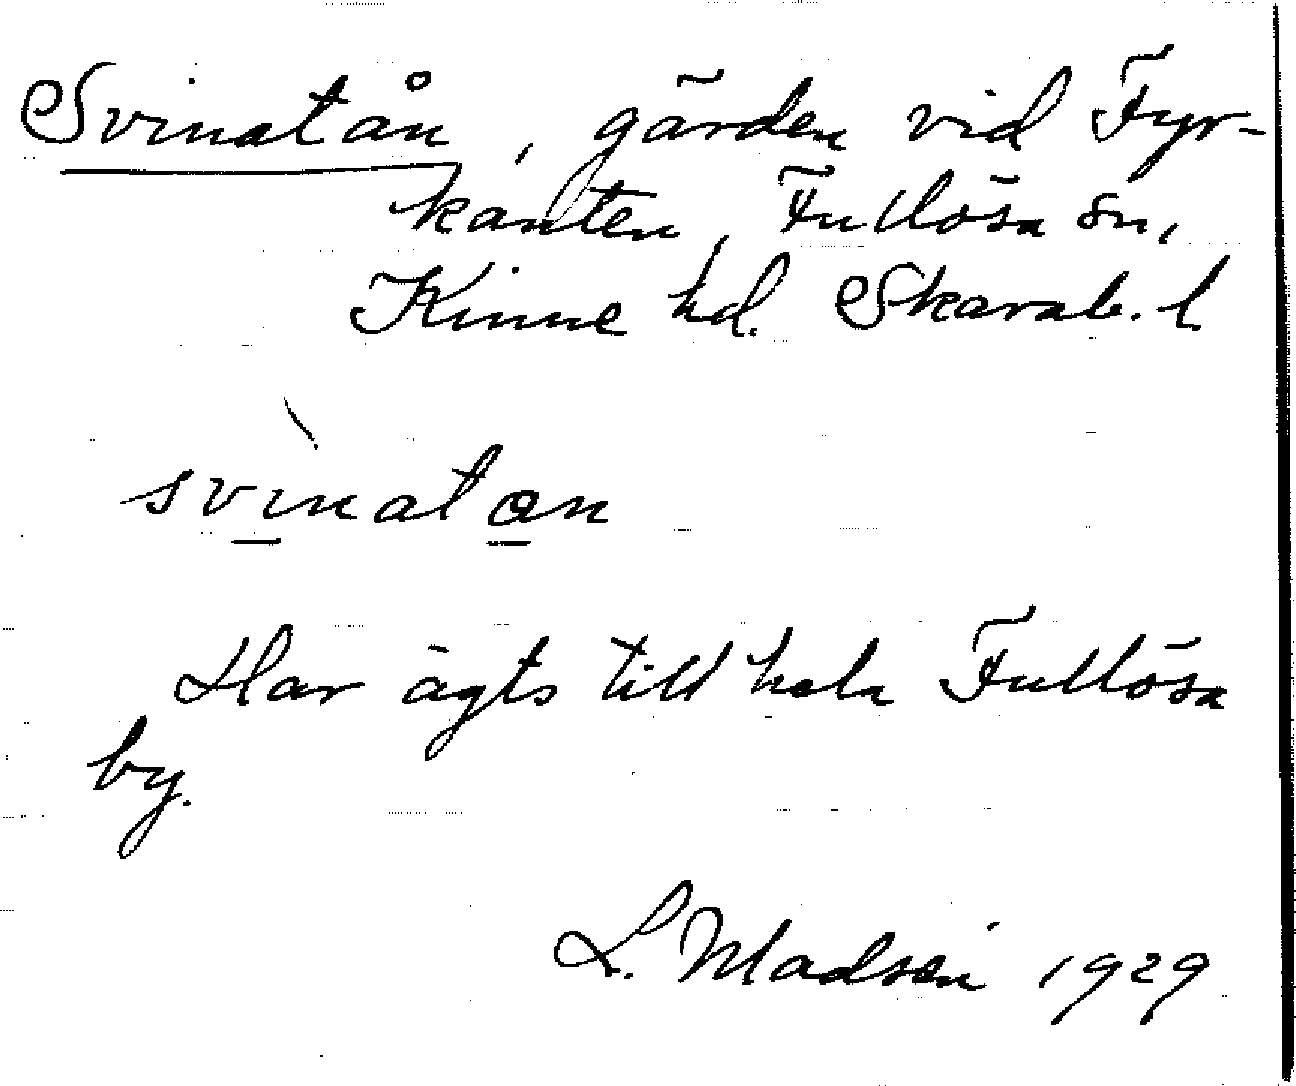 Svinatån, gärden vid Fyr-
kanten, Fullösa sn,
Kinne hd. Skarab. l
svìnatan
Har ägts till hela Fullösa
by.
L. Madsén 1929